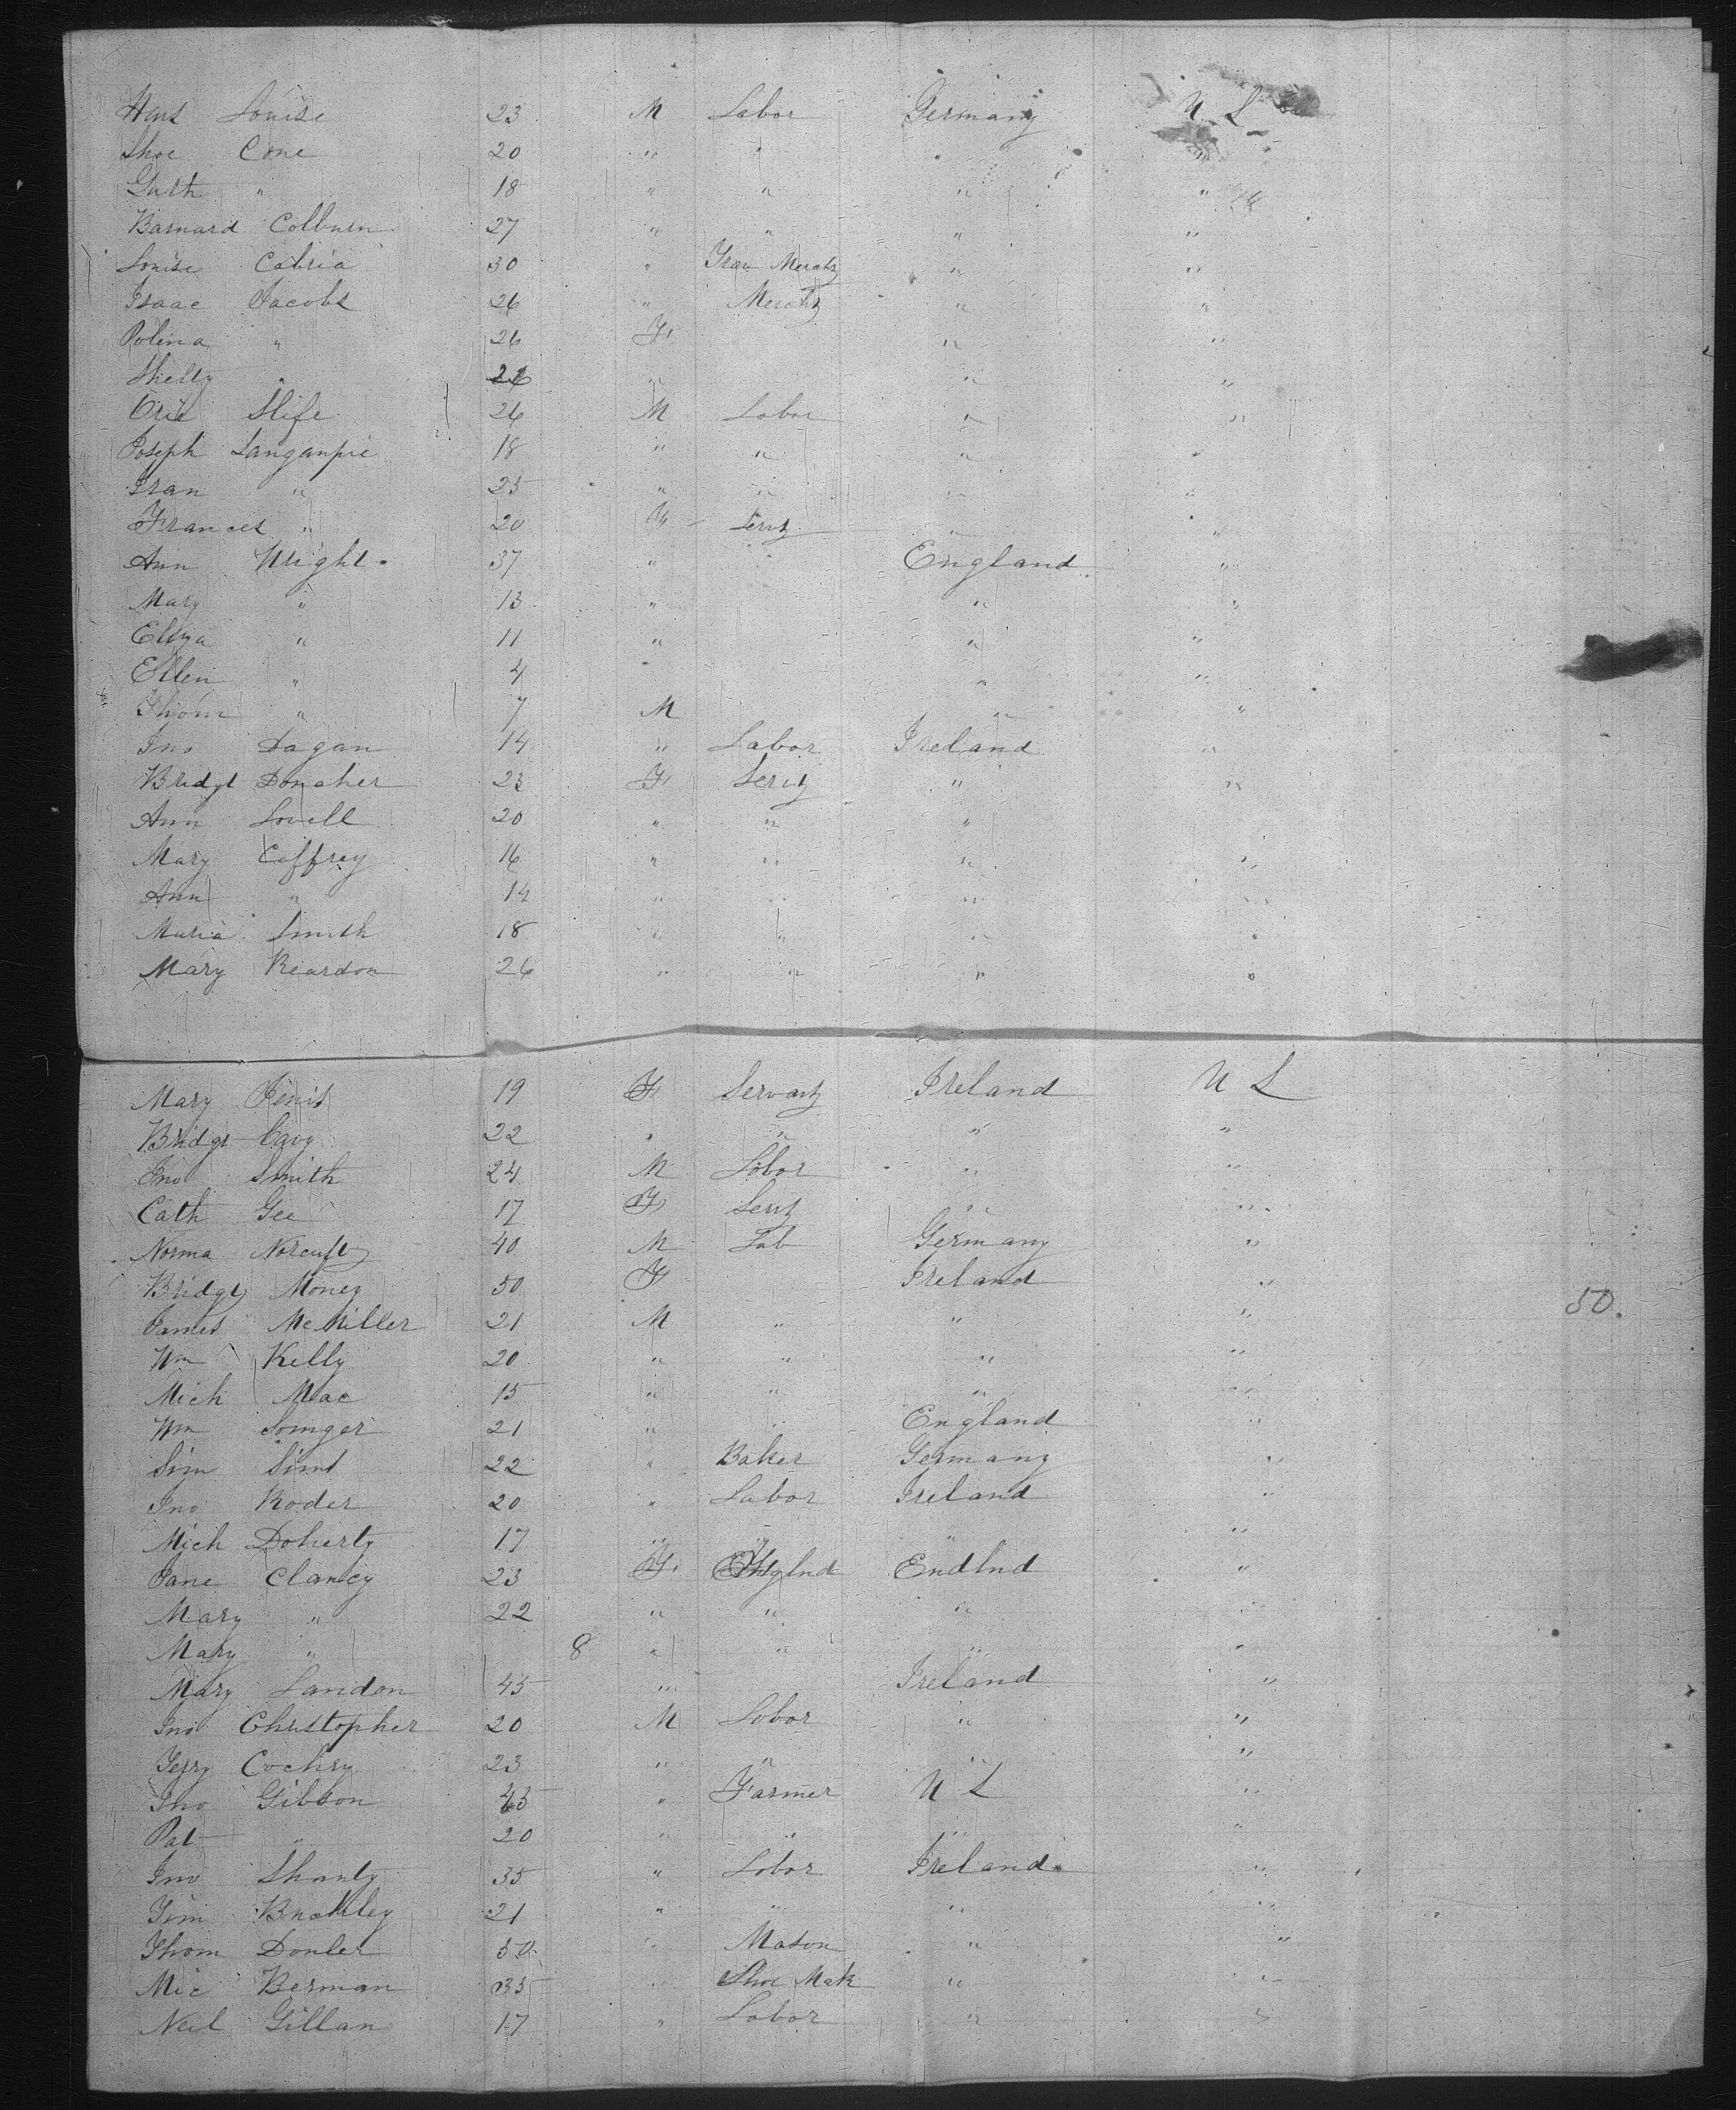 Hans Louise 23 M Labor Germany U S
Shoe Cone 20 " " " "
Guth " 18 " " " "
Barnard Colburn 27 " " " "
Louise Cabria 30 " Trav Mercht " "
Isaac Jacobs 26 " Mercht " "
Polina " 26 F " "
" " " "
Slife 26 M Labor " "
Joseph Langanpie 18 " " " "
Iran " 25 " " " "
Frances " 20 F Servt " "
Ann Wright 37 " England "
Mary " 13 " " "
Eliza " 11 " " "
Ellen " 4 " " "
Thom " 7 M " "
Jno Dagan 14 " Labor Ireland "
Bridgt Donaher 23 F Servt " "
Ann Lovell 20 " " " "
Mary Caffrey 16 " " " "
Ann " 14 " " " "
Maria Smith 18 " " " "
Mary Reardon 26 " " " "
Mary 19 F Servant Ireland U S
Bridgt 22 " " " "
Jno Smith 24 M Labor " "
Cath Gee 17 F Servt " "
Norma 40 M Lab Germany "
Bridgt Money 50 F Ireland " 50.
James McMiller 21 M " " "
Wm Kelly 20 " " " "
Mich Mac 15 " " " "
Wm Somger 21 " " England "
Sim Sims 22 " Baker Germany "
Jno Roder 20 " Labor Ireland "
Mich Doherty 17 " " " "
Jane Clancy 23 F. Englnd Endlnd "
Mary " 22 " " " "
Mary " 8 " " " "
Mary Landon 45 " Ireland "
Jno Christopher 20 M Labor " "
Jerry Cochry 23 " " " "
Jno Gibson " Farmer U S "
Pat " 20 " " " "
Jno Shanty 35 " Labor Ireland "
Jim Buckley 21 " " " "
Thom Donler 50 " Mason " "
Mic Berman 35 " Shoe Mak " "
Neil Gillan 17 " Labor " "